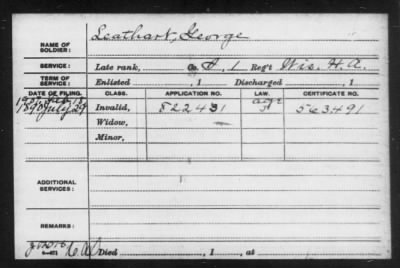 NAME OF SOLDIER: Leathart, George
SERVICE: Late rank, Co. F, 1 Reg't Wis. H. A.
TERM OF SERVICE: Enlisted , 1 Discharged , 1
DATE OF FILING. CLASS. APPLICATION NO. LAW. CERTIFICATE NO.
1907 Feb 18 age
1890 July 29 Invalid, 822431 563491
Widow,
Minor,
ADDITIONAL SERVICES:
REMARKS:
Died , 1 , at